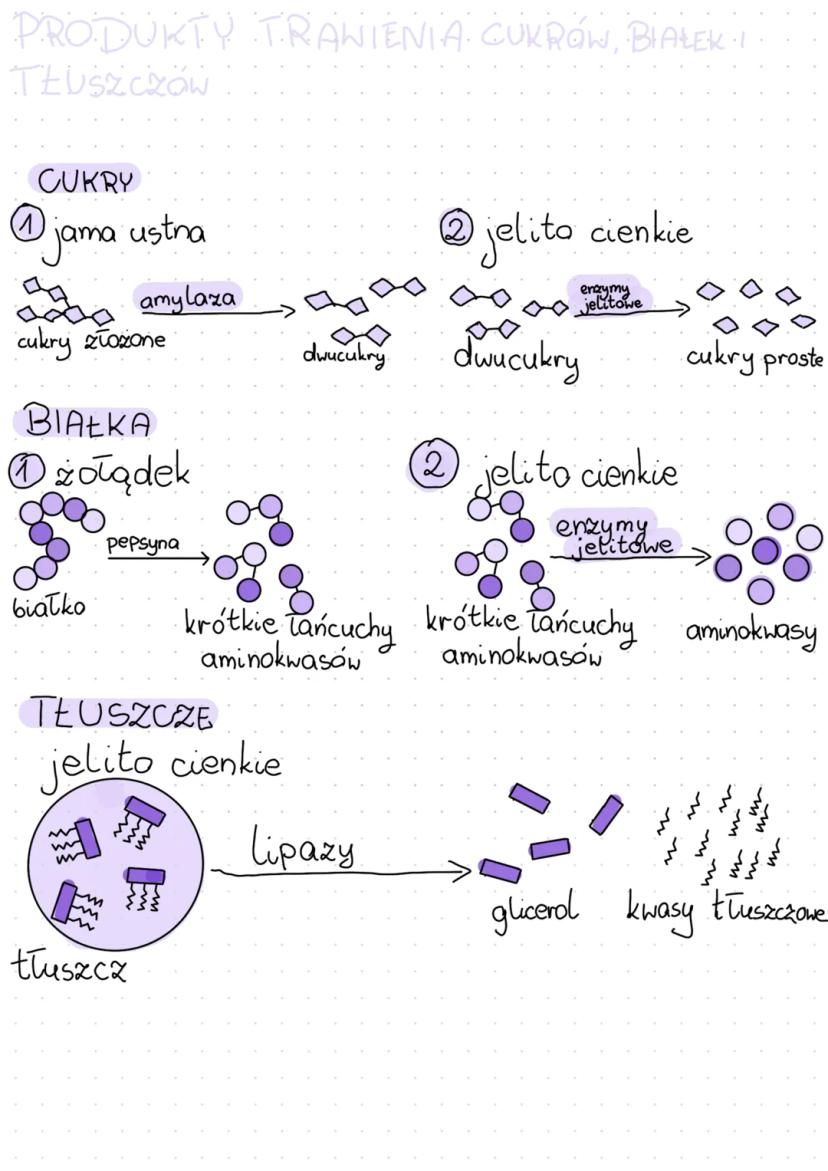 PRODUKTY TRAWIENIA CUKRÓW, BIAŁEK I
TŁUSZCZÓW
CUKRY
1 jama ustna
amylaza
cukry złożone
dwucukry
2 jelito cienkie
enzymy
jelitowe
dwucukry
cukry proste
BIAŁKA
1 żołądek
pepsyna
białko
krótkie łańcuchy
aminokwasów
2 jelito cienkie
enzymy
jelitowe
krótkie łańcuchy
aminokwasów
aminokwasy
TŁUSZCZE
jelito cienkie
lipazy
tłuszcz
glicerol
kwasy tłuszczowe